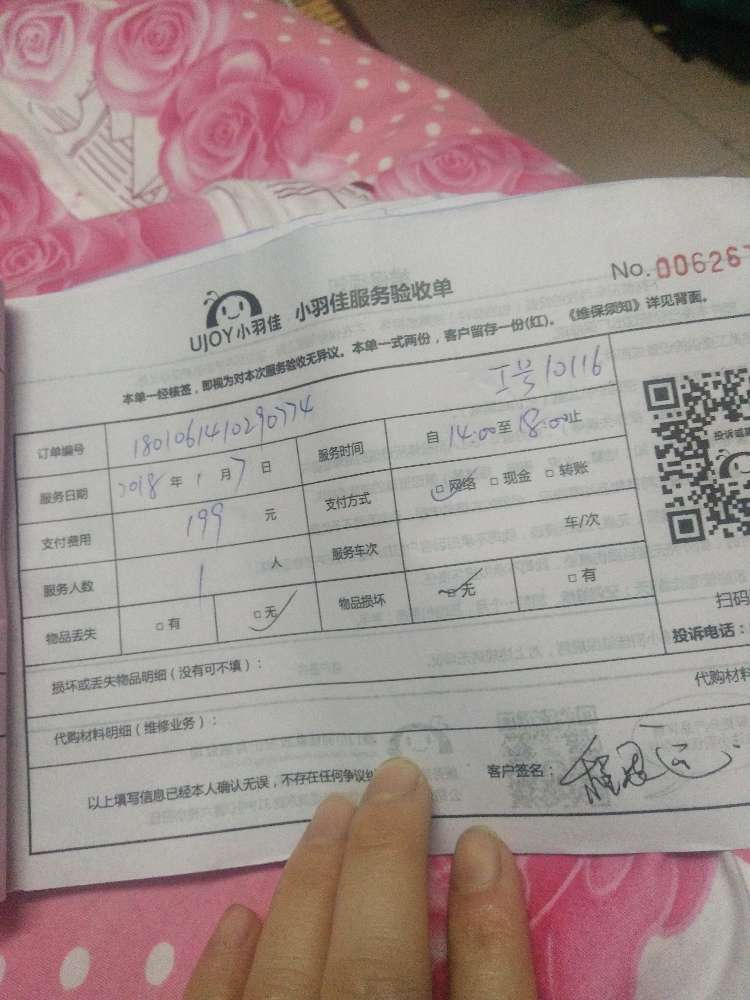 No.006267
UJOY小羽佳 小羽佳服务验收单
本单一经核签，即视为对本次服务验收无异议。本单一式两份，客户留存一份(红)。《维保须知》详见背面。
工号10116
订单编号 180106141029 服务时间 自 14:00至 18:00止
服务日期 2018 年 1 月 7 日 支付方式 □网络 □现金 □转账
支付费用 199 元 服务车次 车/次
服务人数 1 人 物品损坏 □无 □有
物品丢失 □有 □无
投诉
扫码
投诉电话：
损坏或丢失物品明细（没有可不填）：
代购材料明细（维修业务）： 代购材料
以上填写信息已经本人确认无误，不存在任何争议 客户签名：